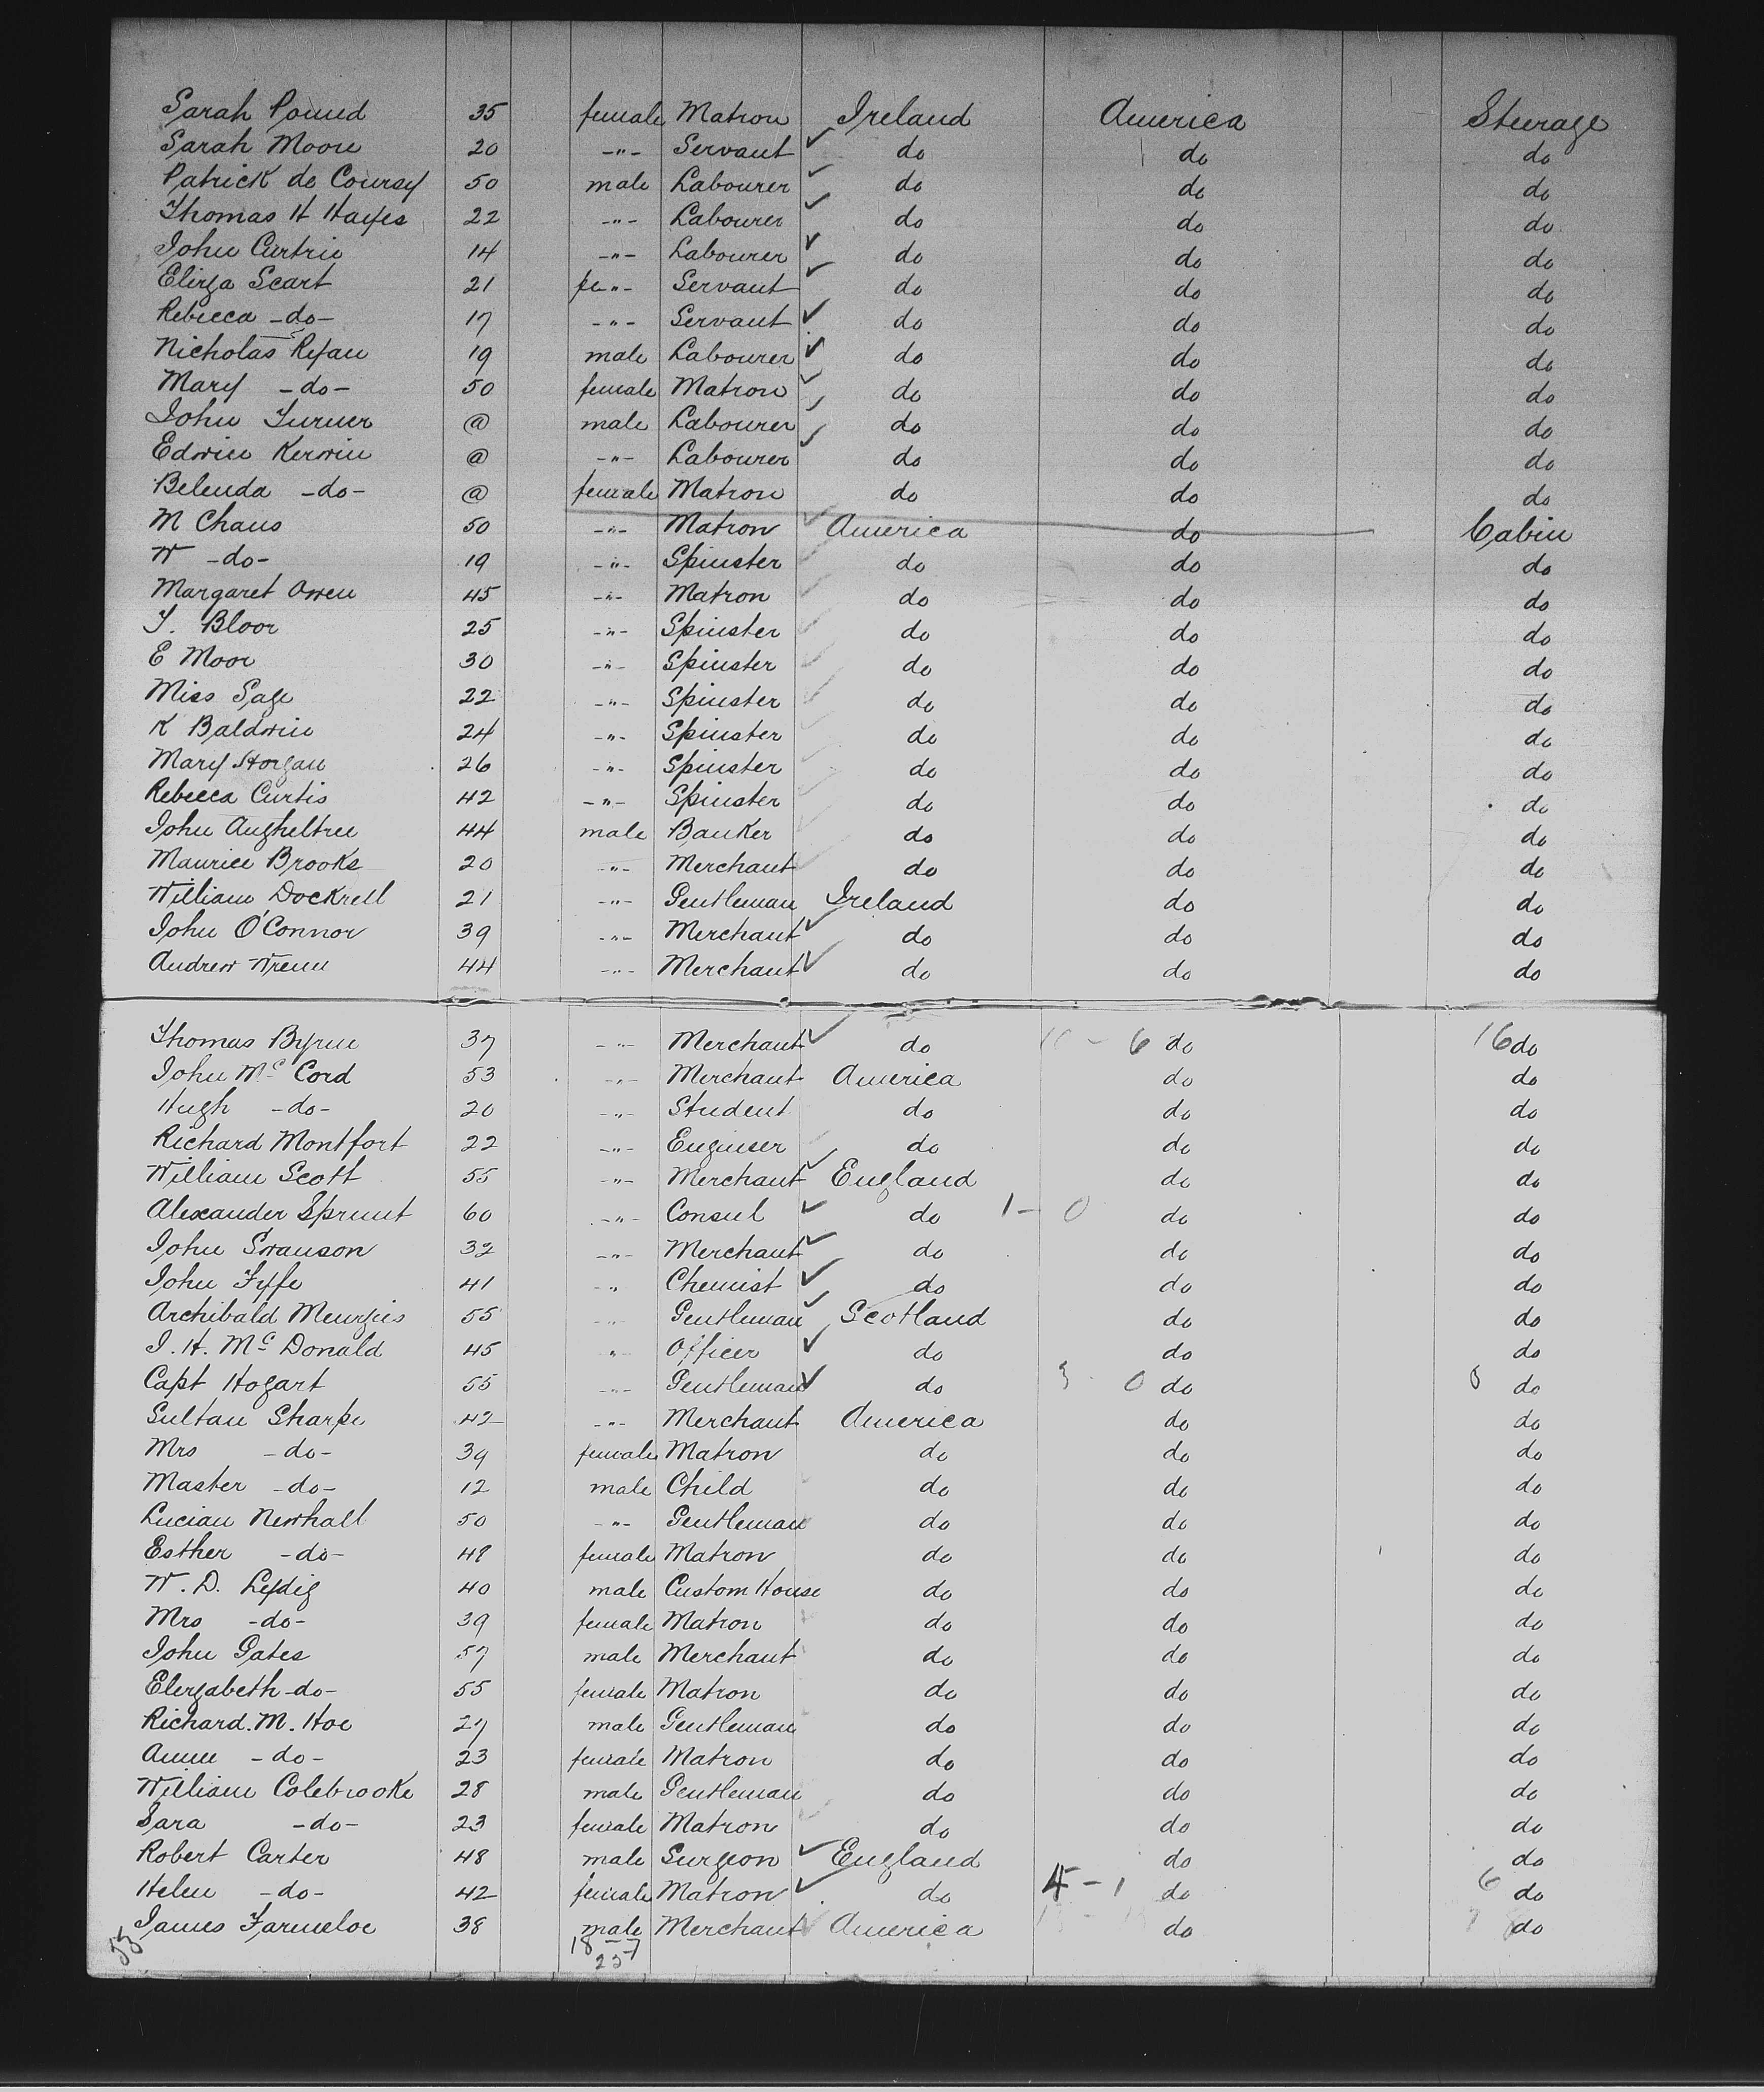 Sarah Pound 35 female Matron Ireland America Steerage
Sarah Moore 20 -"- Servant do do do
Patrick de Coursey 50 male Labourer do do do
Thomas H Hayes 22 -"- Labourer do do do
John Curtrie 14 -"- Labourer do do do
Eliza Scart 21 fe"- Servant do do do
Rebecca -do- 17 -"- Servant do do do
Nicholas Ryan 19 male Labourer do do do
Mary -do- 50 female Matron do do do
John Turner @ male Labourer do do do
Edwin Kerwin @ -"- Labourer do do do
Belenda -do- @ female Matron do do do
M Chans 50 -"- Matron America do Cabin
W -do- 19 -"- Spinster do do do
Margaret Owen 45 -"- Matron do do do
T. Bloor 25 -"- Spinster do do do
E Moor 30 -"- Spinster do do do
Miss Sage 22 -"- Spinster do do do
K Baldwin 24 -"- Spinster do do do
Mary Horgan 26 -"- Spinster do do do
Rebecca Curtis 42 -"- Spinster do do do
John Augheltree 44 male Banker do do do
Maurice Brooks 20 -"- Merchant do do do
William Dockrell 21 -"- Gentleman Ireland do do
John O'Connor 39 -"- Merchant do do do
Andrew Wrenn 44 -"- Merchant do do do
Thomas Byrne 37 -"- Merchant do - 6 do 16 do
John Mc Cord 53 -"- Merchant America do do
Hugh -do- 20 -"- Student do do do
Richard Montfort 22 -"- Engineer do do do
William Scott 55 -"- Merchant England do do
Alexander Sprunt 60 -"- Consul do 1 - 0 do do
John Swanson 32 -"- Merchant do do do
John Fyfe 41 -" Chemist do do do
Archibald Menzies 55 -"- Gentleman Scotland do do
J. H. Mc Donald 45 " Officer do do do
Capt Hogart 55 -"- Gentleman do 3 0 do do
Sultan Sharpe 42 -"- Merchant America do do
Mrs -do- 39 female Matron do do do
Master -do- 12 male Child do do do
Lucian Newhall 50 -"- Gentleman do do do
Esther -do- 48 female Matron do do do
W. D. Leydig 40 male Custom House do do do
Mrs -do- 39 female Matron do do do
John Gates 57 male Merchant do do do
Elezabeth -do- 55 female Matron do do do
Richard. M. Hoe 27 male Gentleman do do do
Annie -do- 23 female Matron do do do
William Colebrooke 28 male Gentleman do do do
Sara -do- 23 female Matron do do do
Robert Carter 48 male Surgeon England do do
Helen -do- 42 female Matron do 4 - 1 do 6 do
James Farmeloe 38 male Merchant America do do
53 18 - 7
25